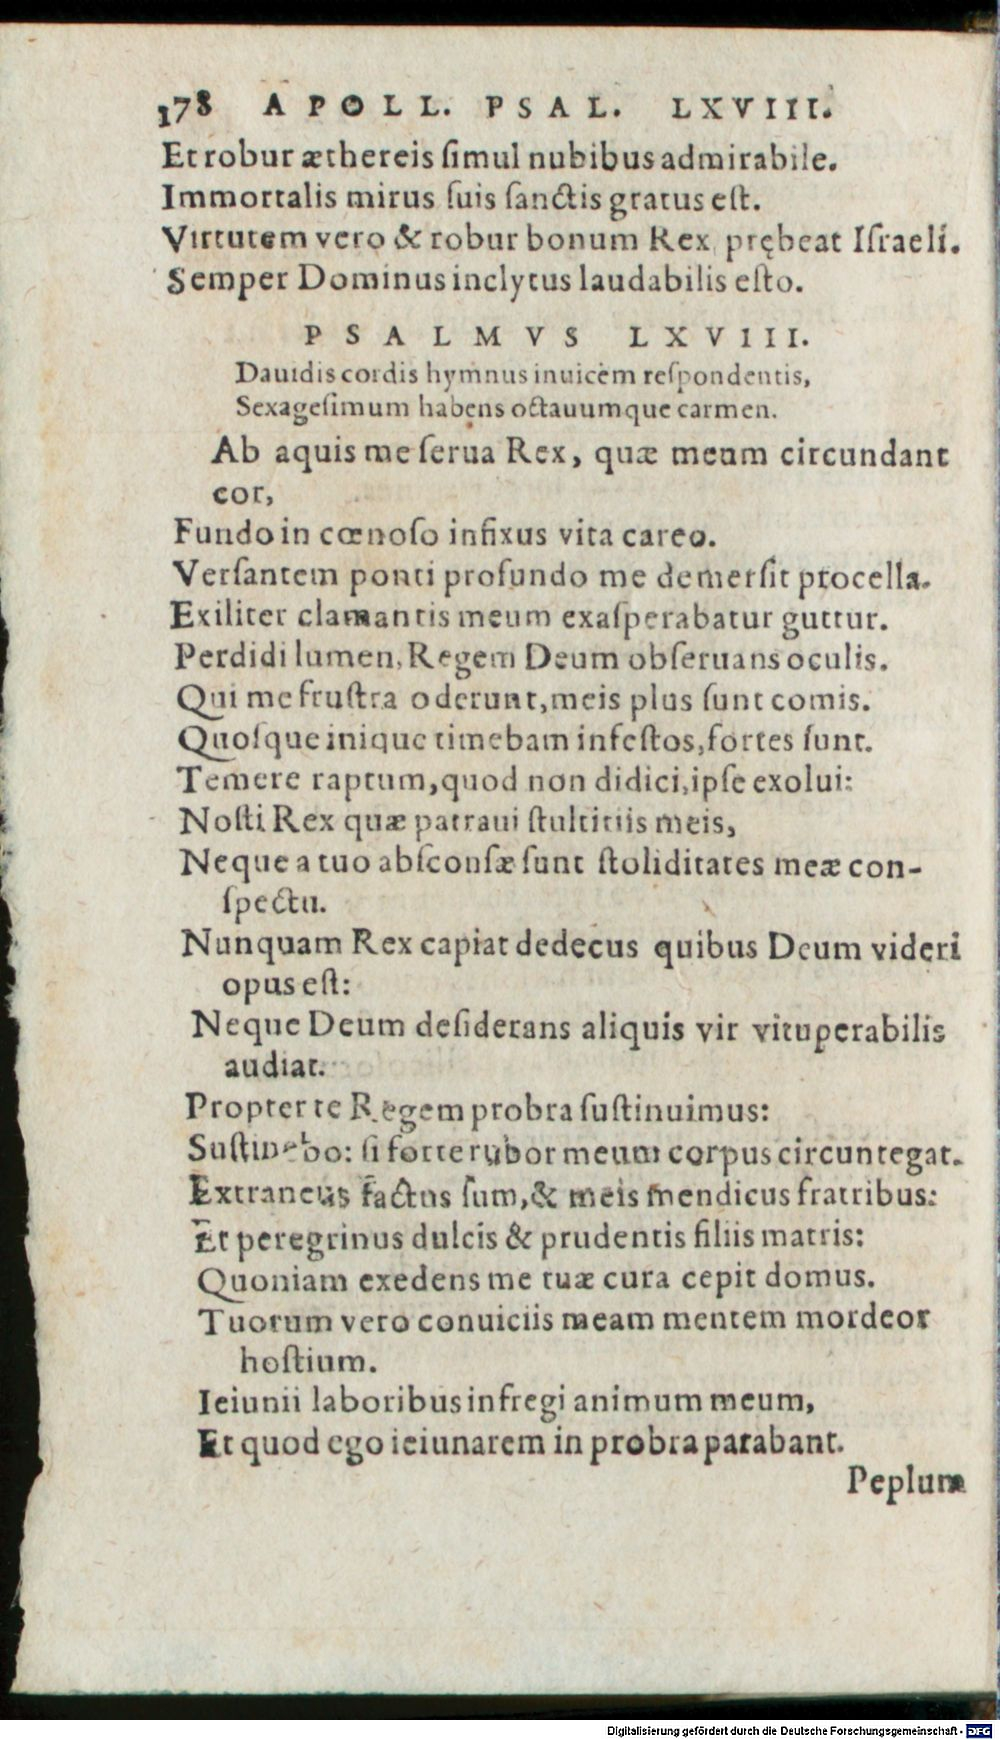 178 APOLL. PSAL. LXVIII.
Et robur æthereis ſimul nubibus admirabile.
Immortalis mirus ſuis ſanctis gratus eſt.
Virtutem vero & robur bonum Rex prębeat Iſraeli.
Semper Dominus inclytus laudabilis eſto.
PSALMVS LXVIII.
Dauidis cordis hymnus inuicèm reſpondentis,
Sexageſimum habens octauumque carmen.
Ab aquis me ſerua Rex, quæ meum circundant
cor,
Fundo in cœnoſo infixus vita careo.
Verſantem ponti profundo me demerſit procella.
Exiliter clamantis meum exaſperabatur guttur.
Perdidi lumen, Regem Deum obſeruans oculis.
Qui me fruſtra oderunt, meis plus ſunt comis.
Quoſque inique timebam infeſtos, fortes ſunt.
Temere raptum, quod non didici, ipſe exolui:
Noſti Rex quæ patraui ſtultitiis meis,
Neque a tuo abſconſæ ſunt ſtoliditates meæ con-
ſpectu.
Nunquam Rex capiat dedecus quibus Deum videri
opus eſt:
Neque Deum deſiderans aliquis vir vituperabilis
audiat.
Propter te Regem probra ſuſtinuimus:
Suſtinebo: ſi forte rubor meum corpus circuntegat.
Extraneus factus ſum, & meis mendicus fratribus:
Et peregrinus dulcis & prudentis filiis matris:
Quoniam exedens me tuæ cura cepit domus.
Tuorum vero conuiciis meam mentem mordeor
hoſtium.
Ieiunii laboribus infregi animum meum,
Et quod ego ieiunarem in probra parabant.
Peplum
Digitalisierung gefördert durch die Deutsche Forschungsgemeinschaft - DFG